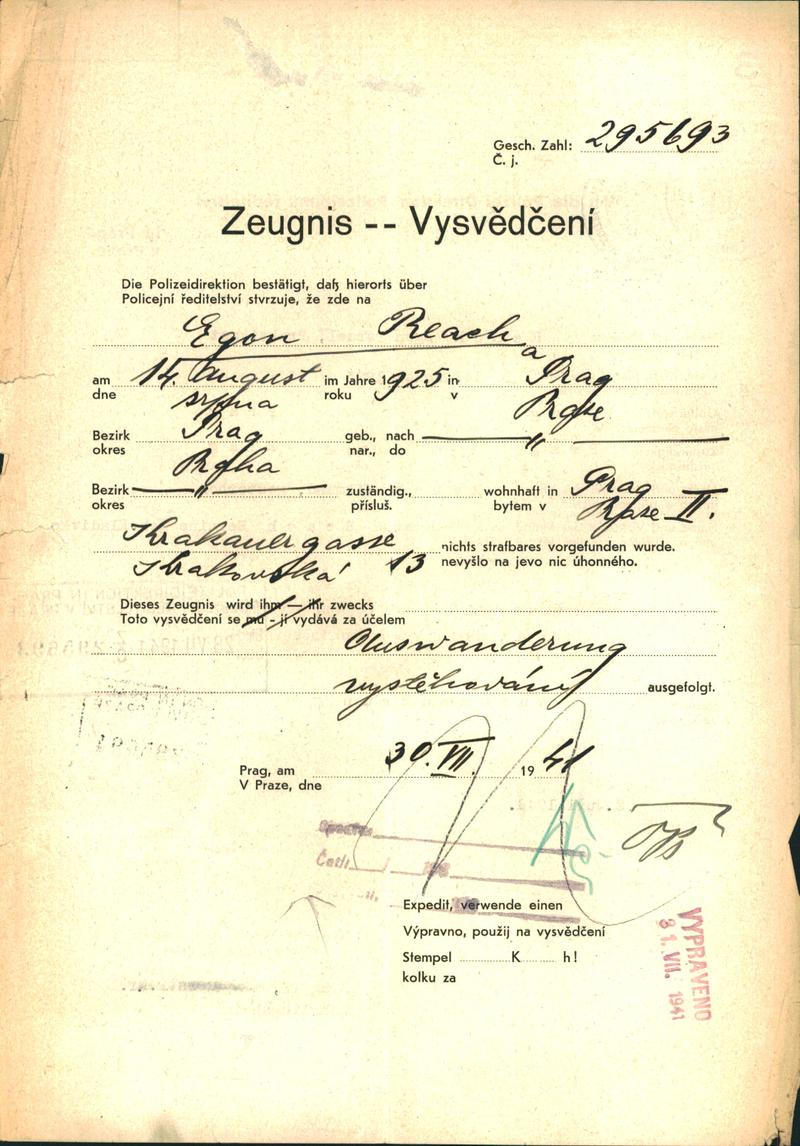 Gesch. Zahl: 295693
Č. j.
Zeugnis -- Vysvědčení
Die Polizeidirektion bestätigt, daß hierorts über
Policejní ředitelství stvrzuje, že zde na
Egon Reach
a
am 14. August im Jahre 1925 in Prag
dne srpna roku v Praze
Bezirk Prag geb., nach — " —
okres Praha nar., do
Bezirk — " — zuständig., wohnhaft in Prag
okres přísluš. bytem v Praze II.
Krakauergasse nichts strafbares vorgefunden wurde.
Krakovská 13 nevyšlo na jevo nic úhonného.
Dieses Zeugnis wird ihm — ihr zwecks
Toto vysvědčení se mu - jí vydává za účelem
Auswanderung
vystěhování ausgefolgt.
Prag, am 30. VII. 1941
V Praze, dne
Četl:
Expedit, verwende einen
Výpravno, použij na vysvědčení
Stempel K h!
kolku za
VYPRAVENO
31. VII. 1941